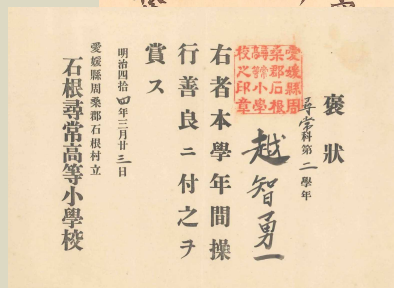 褒狀
尋常科第二學年
越智勇一
右者本學年間操
行善良ニ付之ヲ
賞ス
明治四拾四年三月廿三日
愛媛縣周桑郡石根村立
石根尋常高等小學校
愛媛縣周
桑郡石根
尋常小學
校之印章